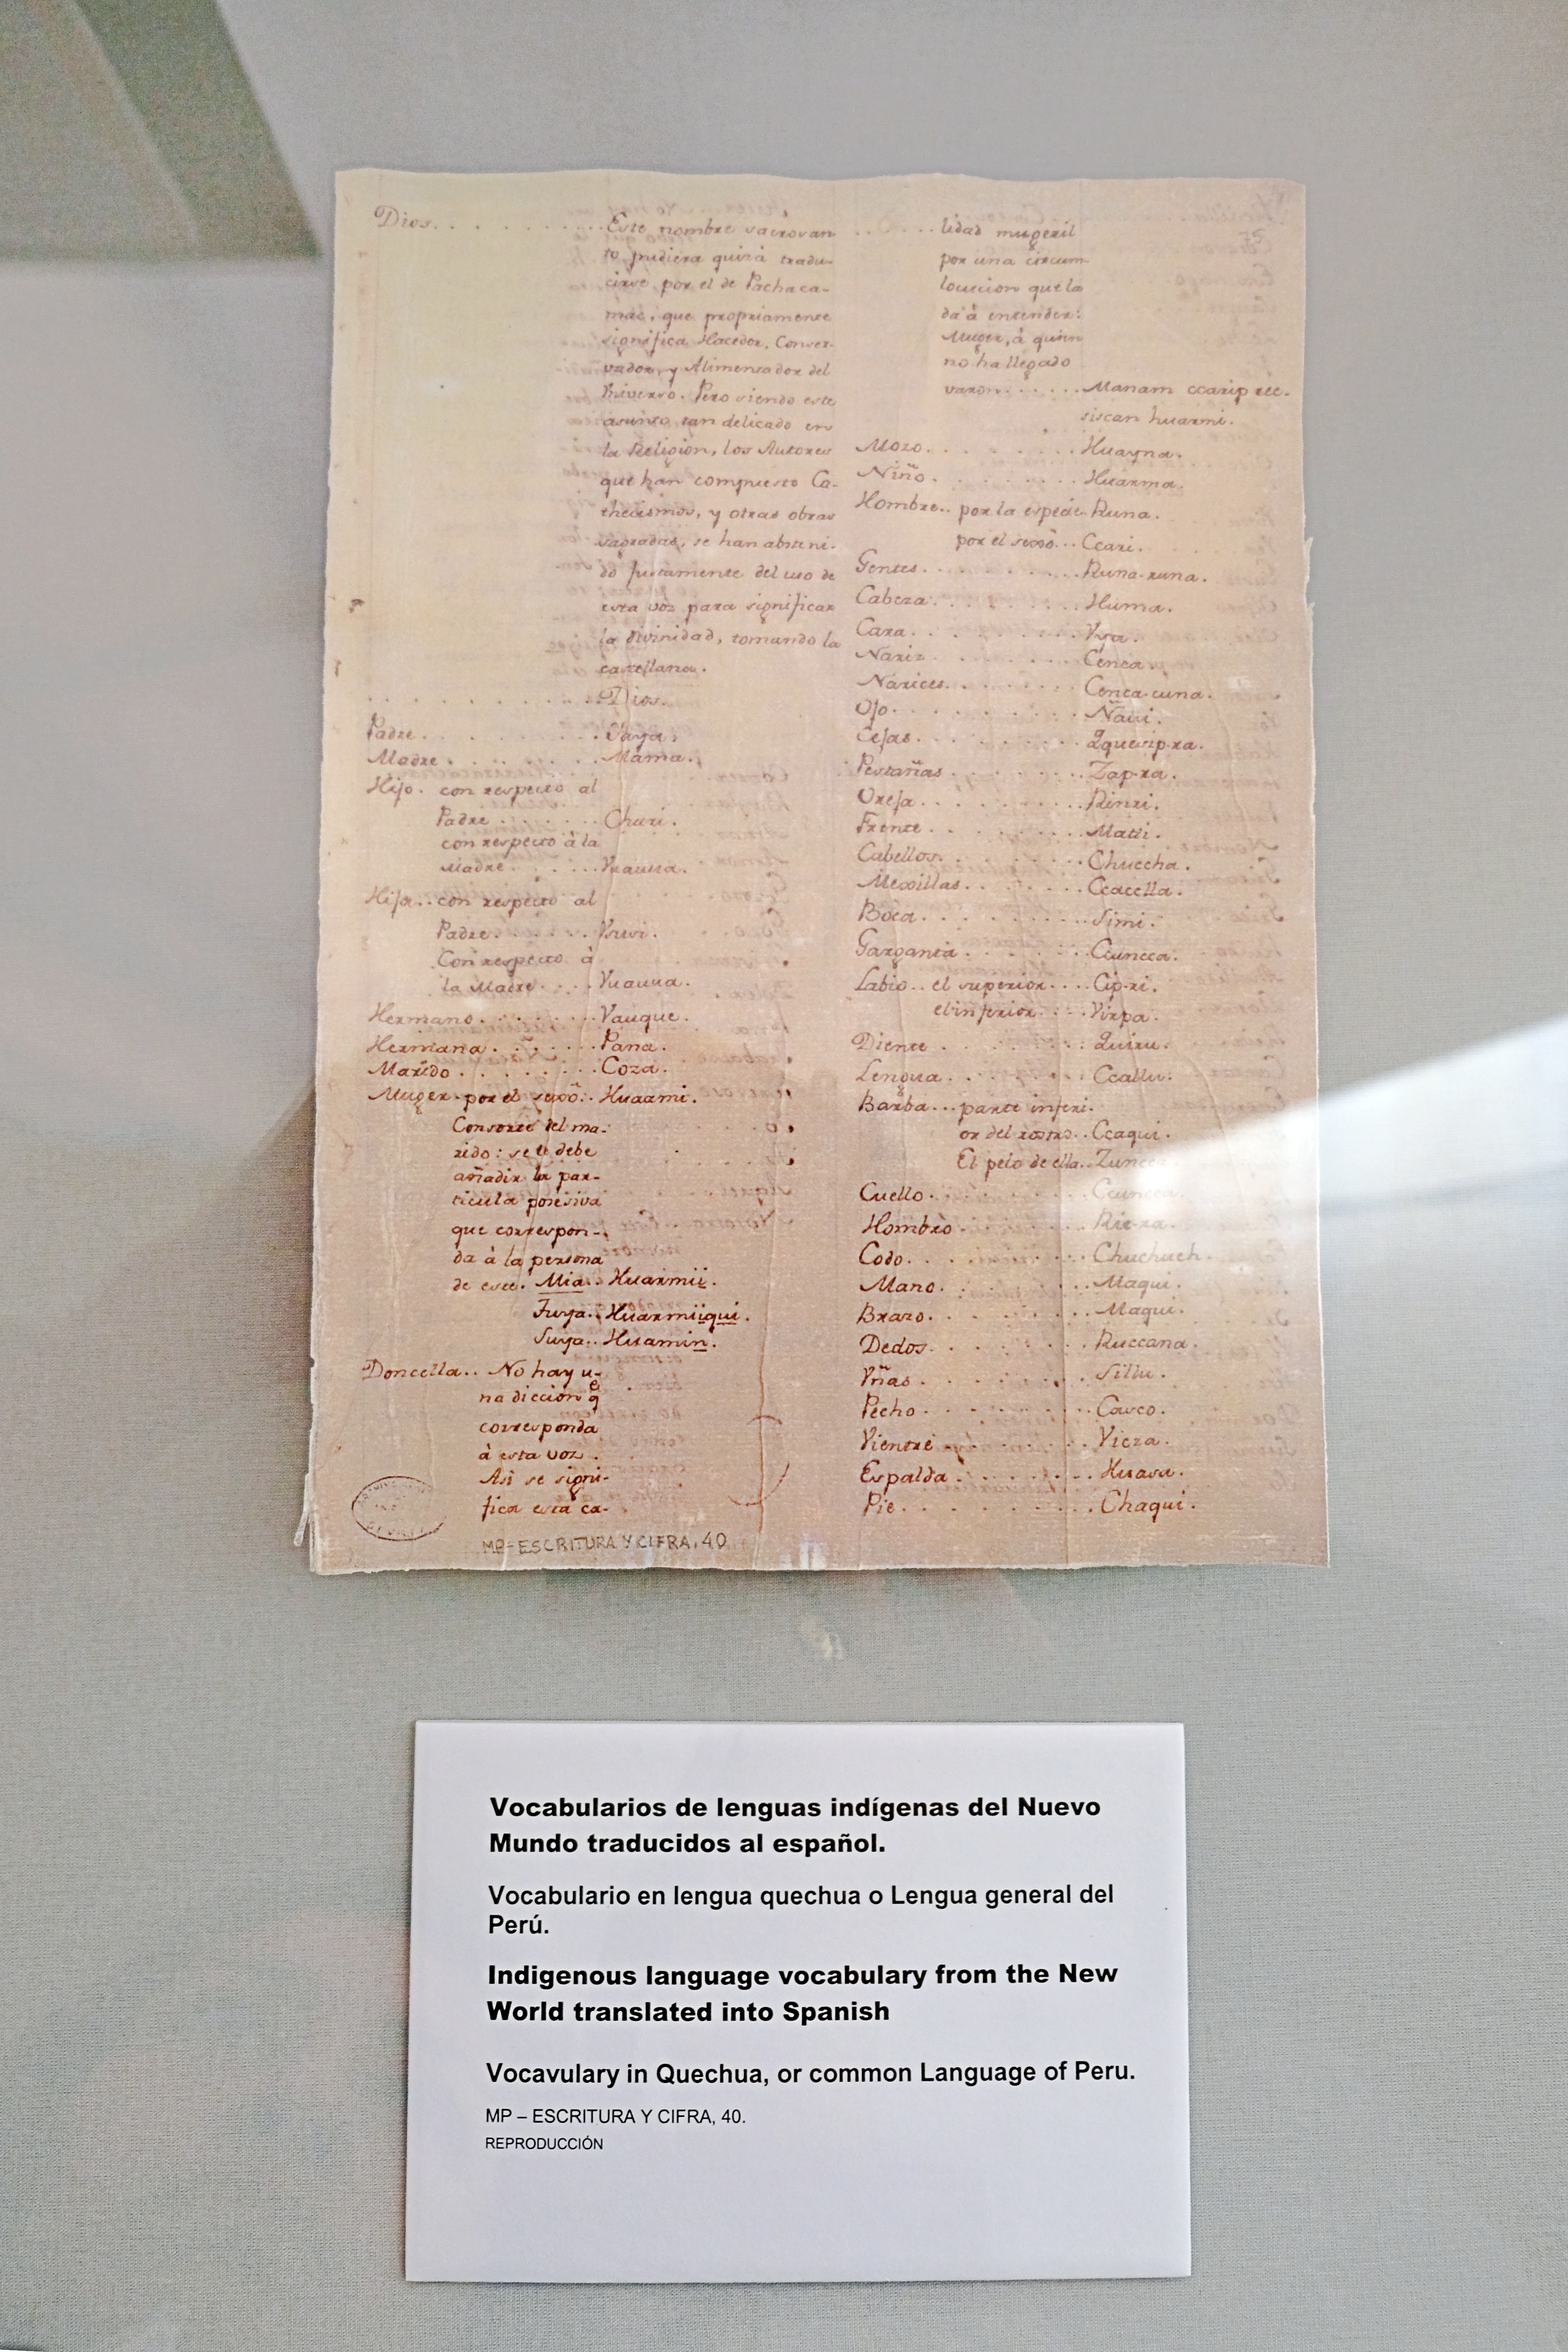 Dios. . . . . . . . . . Este nombre sacrosan-
to pudiera quizá tradu-
cirse por el de Pachaca-
mac, que propriamente
significa Hacedor, Conser-
vador, y Alimentador del
Universo. Pero siendo este
asunto tan delicado en
la Religion, los Autores
que han compuesto Ca-
thecismos, y otras obras
sagradas, se han absteni-
do justamente del uso de
esta voz para significar
la divinidad, tomando la
castellana.
. . . . . . . . . . Dios.
Padre. . . . . . . . Yaya.
Madre. . . . . . . . Mama.
Hijo. con respecto al
Padre . . . . . . Churi.
con respecto à la
Madre. . . . . . Vuauua.
Hija.. con respecto al
Padre. . . . . . Vsusi.
Con respecto à
la Madre. . . . Vuauua.
Hermano. . . . . . . Vauque.
Hermana. . . . . . . Pana.
Marido. . . . . . . . Coza.
Muger. por el sexô.. Huarmi.
Consorte del ma-
rido: se le debe
añadir la par-
ticula posesiva
que correspon-
da à la persona
de este. Mia.. Huarmii.
Tuya.. Huarmiiqui.
Suya.. Huamin.
Doncella.. No hay u-
na diccion q̃
corresponda
à esta voz.
Asi se signi-
fica esta ca-
MP-ESCRITURA Y CIFRA, 40
. . . . . lidad mugeril
por una circum-
locucion que la
da à entender:
Muger, à quien
no ha llegado
varon. . . . . . Manam ccarip ric-
siscan huarmi.
Mozo. . . . . . . . Huayna.
Niño. . . . . . . . Huarma.
Hombre.. por la especie. Runa.
por el sexô... Ccari.
Gentes. . . . . . . . Runa-runa.
Cabeza. . . . . . . . Huma.
Cara. . . . . . . . Vya.
Nariz. . . . . . . . Cenca.
Narices. . . . . . . . Cenca-cuna.
Ojo. . . . . . . . Ñaui.
Cejas. . . . . . . . Qquesip-ra.
Pestañas. . . . . . . . Zap-ra.
Oreja. . . . . . . . Rinri.
Frente. . . . . . . . Matti.
Cabellos. . . . . . . . Chuccha.
Mexillas. . . . . . . . Ccaclla.
Boca. . . . . . . . Simi.
Garganta. . . . . . . . Ccuncca.
Labio.. el superior. . . . Cip-ri.
el inferior. . . . Virpa.
Diente. . . . . . . . Quiru.
Lengua. . . . . . . . Ccallu.
Barba... parte inferi-
or del rostro.. Ccaqui.
El pelo de ella..
Cuello. . . . . . . . Ccuncca
Hombro. . . . . . . . Ric-ra.
Codo. . . . . . . . Chuchuch.
Mano. . . . . . . . Maqui.
Brazo. . . . . . . . Maqui.
Dedos. . . . . . . . Ruccana.
Vñas. . . . . . . . Sillu.
Pecho. . . . . . . . Casco.
Vientre. . . . . . . . Vicza.
Espalda. . . . . . . . Huasa.
Pie. . . . . . . . Chaqui.
Vocabularios de lenguas indígenas del Nuevo
Mundo traducidos al español.
Vocabulario en lengua quechua o Lengua general del
Perú.
Indigenous language vocabulary from the New
World translated into Spanish
Vocavulary in Quechua, or common Language of Peru.
MP – ESCRITURA Y CIFRA, 40.
REPRODUCCIÓN